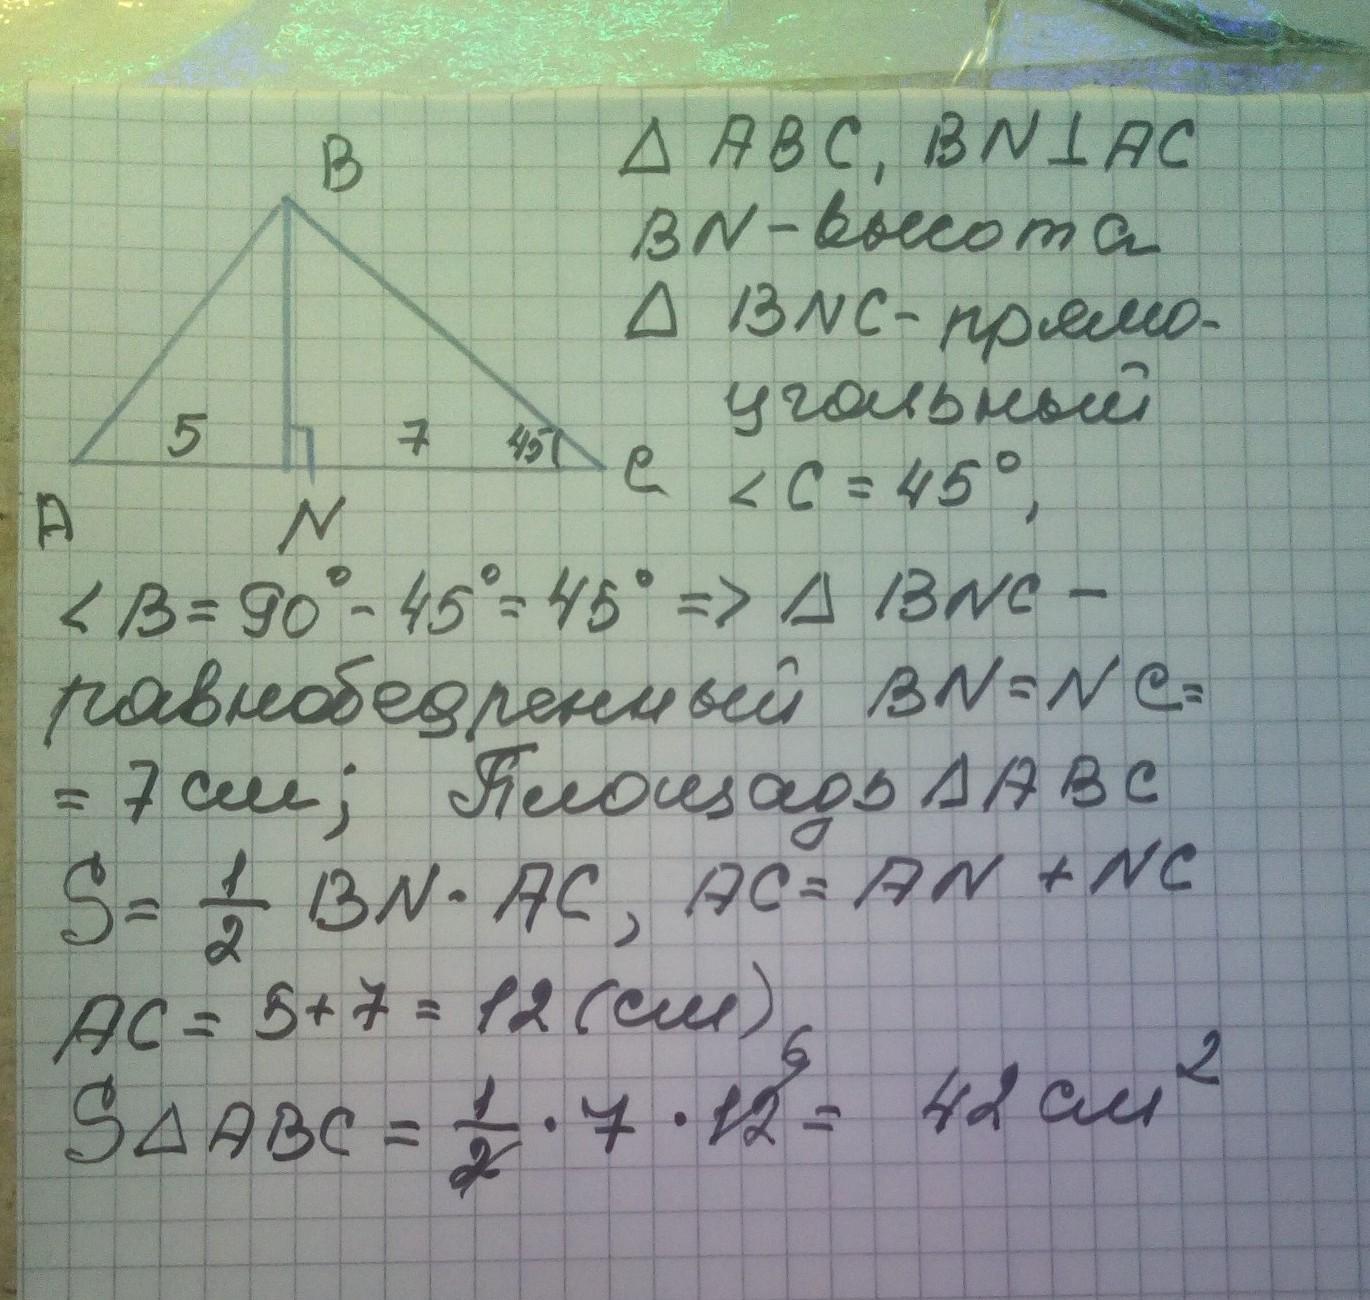 B
5
7
45
A
N
C
Δ ABC, BN⊥AC
BN - высота
Δ BNC - прямо-
угольный
< C = 45°,
< B = 90° - 45° = 45° => Δ BNC -
равнобедренный BN = NC =
= 7 см; Площадь Δ ABC
S = 1/2 BN · AC, AC = AN + NC
AC = 5 + 7 = 12 (см)
SΔABC = 1/2 · 7 · 12 6 = 42 см²